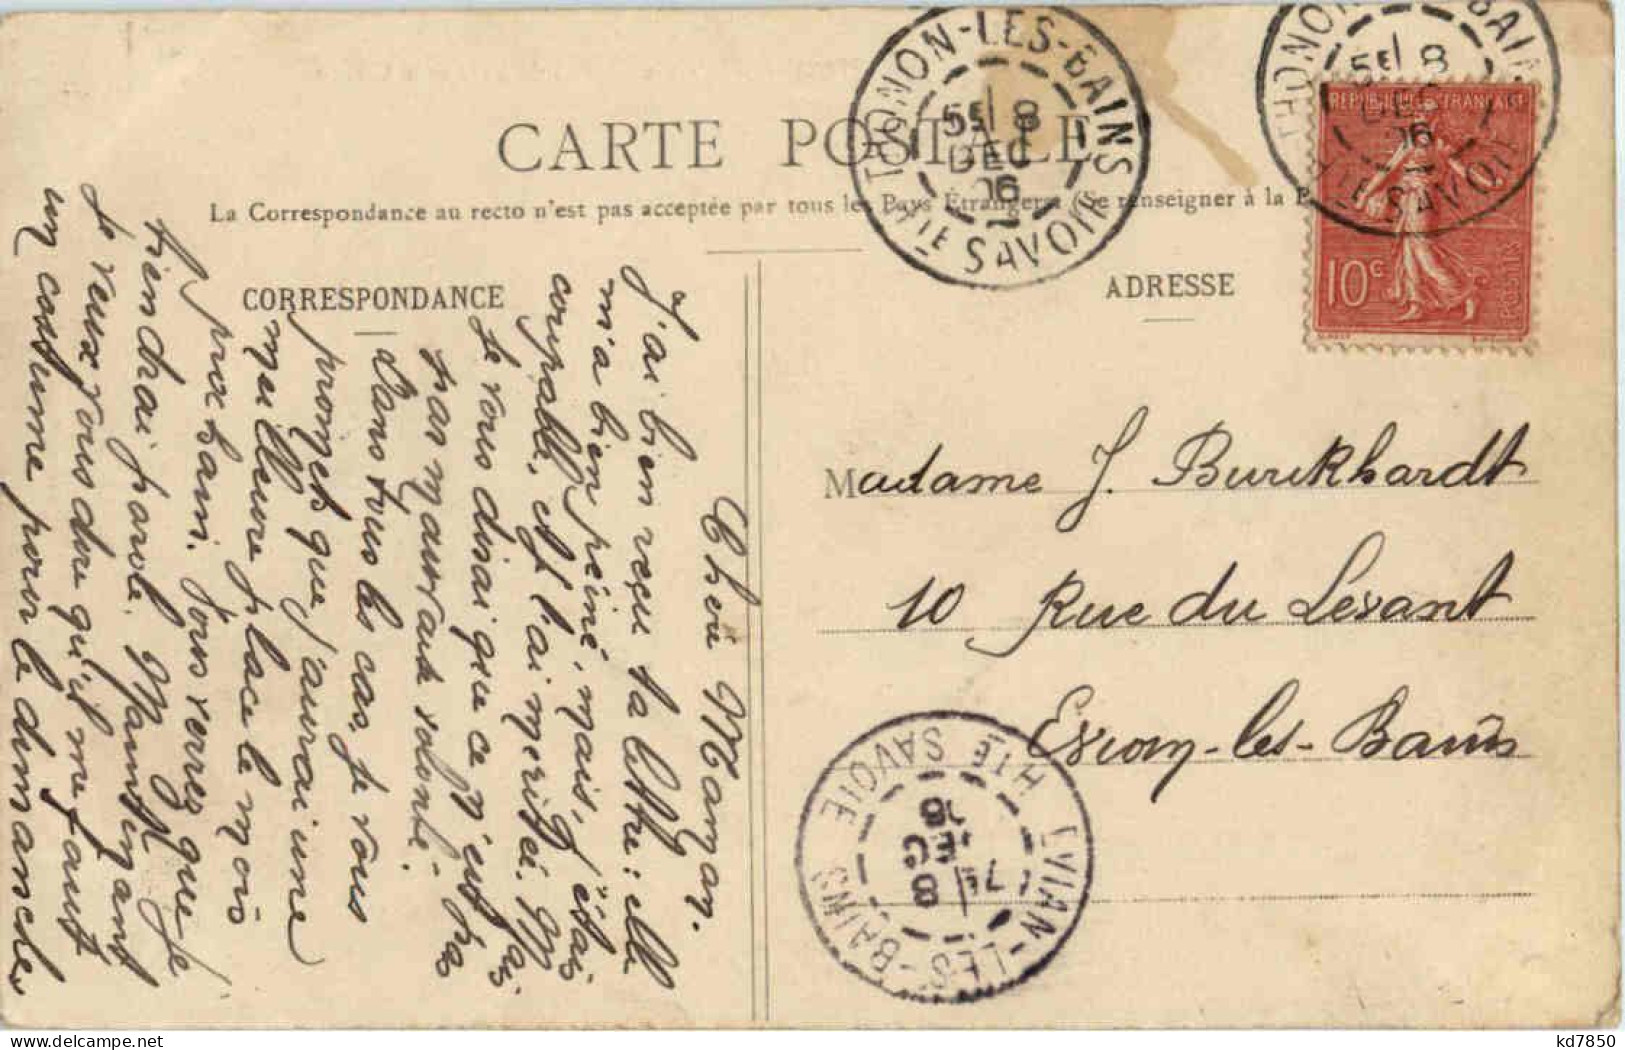 CARTE POSTALE
La Correspondance au recto n'est pas acceptée par tous les Pays Étrangers (Se renseigner à la P
CORRESPONDANCE
ADRESSE
THONON-LES-BAINS
5E 8
DEC
06
HTE SAVOIE
THONON BAINS
5E 8
DEC
06
HTE SAVOIE
REPUBLIQUE FRANÇAISE
10c
POSTES
Madame J. Burckhardt
10 Rue du Levant
Evian-les-Bains
EVIAN-LES-BAINS
7E 8
DEC
HTE SAVOIE
Chère Maman.
J'ai bien reçu ta lettre : elle
m'a bien peiné, mais, j'étais
coupable, et l'ai méritée. Mais
Je vous disai que ce n'est pas
par mauvaise volonté.
Dans tous les cas, je vous
promets que j'aurai une
meilleure place le mois
prochain. Vous verrez que je
tiendrai parole. Maintenant
Je veux vous dire qu'il me faut
un costume pour le dimanche,
kd7850